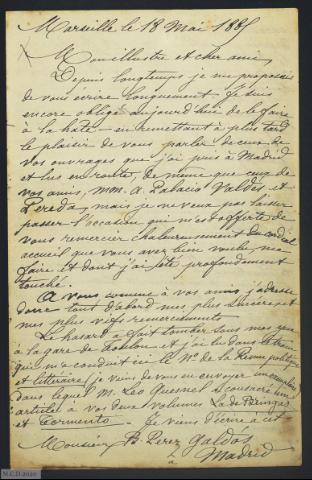 Marseille le 18 Mai 1885
Mon illustre et cher ami,
Depuis longtemps je me proposais
de vous écrire longuement. Je suis
encore obligé aujourd'hui de le faire
à la hâte — en remettant à plus tard
le plaisir de vous parler de ceux de
vos ouvrages que j'ai pris à Madrid
et lus en route, de même que ceux de
vos amis, mon. A. Palacio Valdés et
Pereda, mais je ne veux pas laisser
passer l'occasion qui m'est offerte de
vous remercier chaleureusement du cordial
accueil que vous avez bien voulu me
faire et dont j'ai été profondément
touché.
A vous comme à vos amis j'adresse
donc tout d'abord mes plus sincères et
mes plus vifs remerciements.
Le hasard a fait tomber sous mes yeux
à la gare de Toulon et j'ai lu dans le train
qui m'a conduit ici le Nº de la Revue politique
et littéraire je viens de vous en envoyer un exemplaire
dans lequel M. Léo Quesnel consacre un
article à vos deux volumes La de Bringas
et Tormento. — Je viens d'écrire à cet
Monsieur B. Perez Galdos
à
Madrid
N.C.D 2020